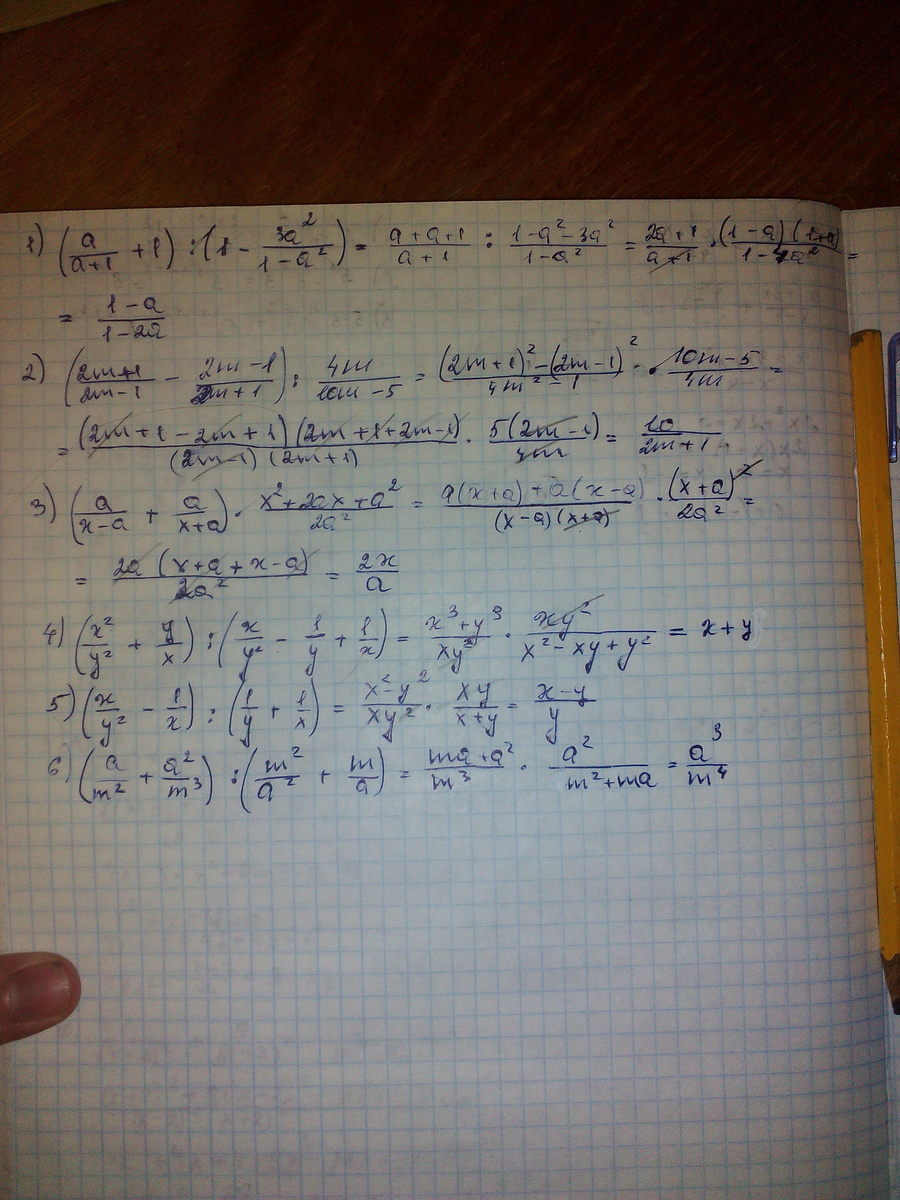 1) (a/(a+1) + 1) : (1 - 3a²/(1-a²)) = (a+a+1)/(a+1) : (1-a²-3a²)/(1-a²) = (2a+1)/(a+1) · (1-a)(1+a)/(1-4a²) =
= (1-a)/(1-2a)
2) ((2m+1)/(2m-1) - (2m-1)/(2m+1)) : 4m/(10m-5) = ((2m+1)²-(2m-1)²)/(4m²-1) · (10m-5)/4m =
= (2m+1-2m+1)(2m+1+2m-1)/((2m-1)(2m+1)) · 5(2m-1)/4m = 10/(2m+1)
3) (a/(x-a) + a/(x+a)) · (x²+2ax+a²)/2a² = (a(x+a)+a(x-a))/((x-a)(x+a)) · (x+a)²/2a² =
= 2a(x+a+x-a)/2a² = 2x/a
4) (x²/y² + y/x) : (x/y² - 1/y + 1/x) = (x³+y³)/xy² · xy²/(x²-xy+y²) = x+y
5) (x/y² - 1/x) : (1/y + 1/x) = (x²-y²)/xy² · xy/(x+y) = (x-y)/y
6) (a/m² + a²/m³) : (m²/a² + m/a) = (ma+a²)/m³ · a²/(m²+ma) = a³/m⁴